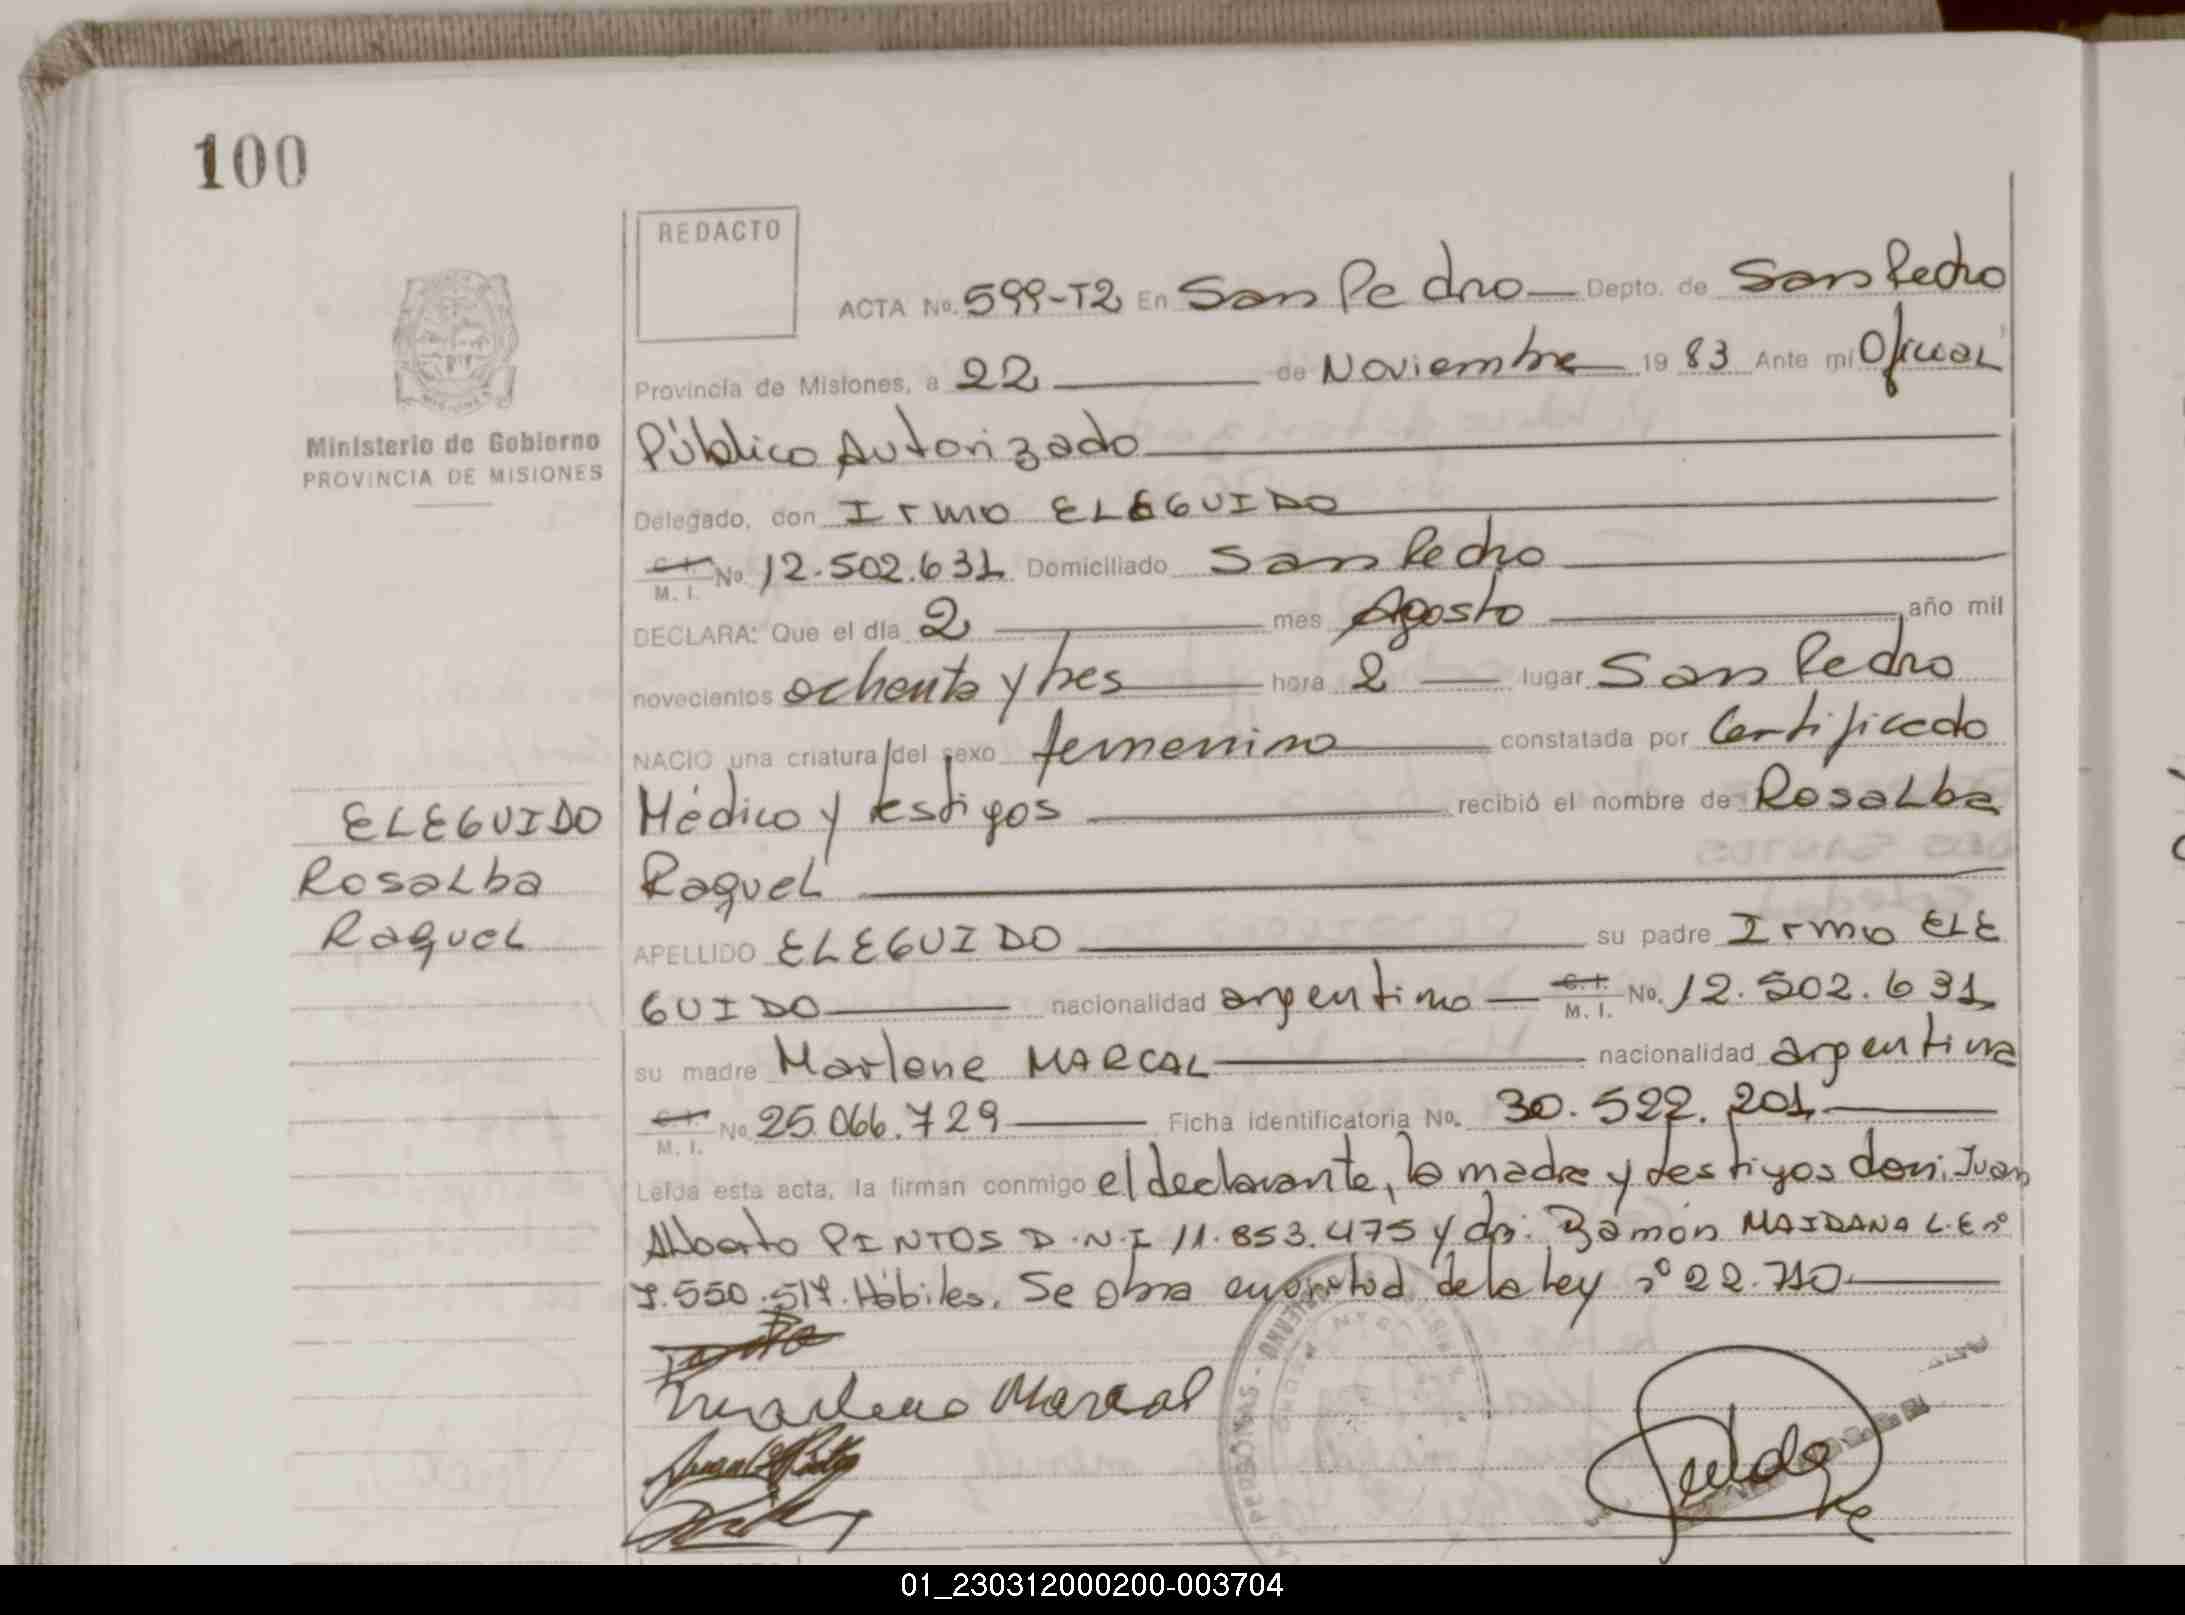 100
REDACTO
ACTA No. 599-T2 En San Pedro Depto. de San Pedro
Provincia de Misiones, a 22 de Noviembre 19 83 Ante mí Oficial
Ministerio de Gobierno
PROVINCIA DE MISIONES
Público Autorizado
Delegado, don Irmo ELEGUIDO
C.I. M. I. No. 12.502.631 Domiciliado San Pedro
DECLARA: Que el día 2 mes Agosto año mil
novecientos ochenta y tres hora 2 lugar San Pedro
NACIO una criatura del sexo femenino constatada por Certificado
ELEGUIDO
Rosalba
Raquel
Médico y testigos recibió el nombre de Rosalba
Raquel
APELLIDO ELEGUIDO su padre Irmo ELE
GUIDO nacionalidad argentino C.I. M. I. No. 12.502.631
su madre Marlene MARCAL nacionalidad argentina
C.I. M. I. No. 25.066.729 Ficha identificatoria No. 30.522.201
Leída esta acta, la firman conmigo el declarante, la madre y testigos don: Juan
Alberto PINTOS D.N.I 11.853.475 y dn: Ramón MAIDANA L.E nº
7.550.517. Hábiles. Se obra en virtud de la ley nº 22.710
Marlene Marcal
PERSONAS
01_230312000200-003704